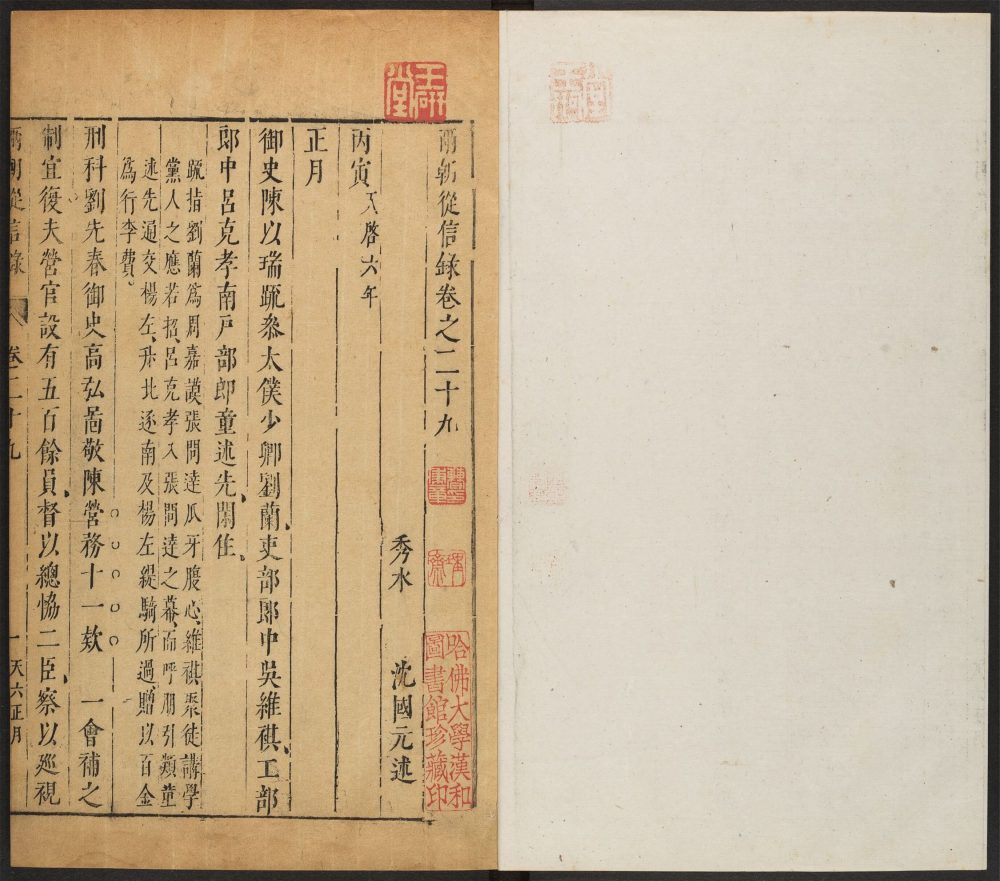 兩朝從信錄卷之二十九
秀水 沈國元述
丙寅天啓六年
正月
御史陳以瑞疏叅太僕少卿劉蘭吏部郎中吳維祺工部
郎中呂克孝南戶部郎童述先閑住
疏指劉蘭爲周嘉謨張問達瓜牙腹心維祺聚徒講學
黨人之應若招呂克孝入張問達之幕而呼朋引類童
述先通交楊左升北逐南及楊左緹騎所過贈以百金
爲行李費
刑科劉先春御史高弘啚敬陳營務十一欵 一會補之
制宜復夫營官設有五百餘員督以總恊二臣察以廵視
兩朝從信錄 卷二十九 一 天六正月
玉硏堂
哈佛大學漢和圖書館珍藏印